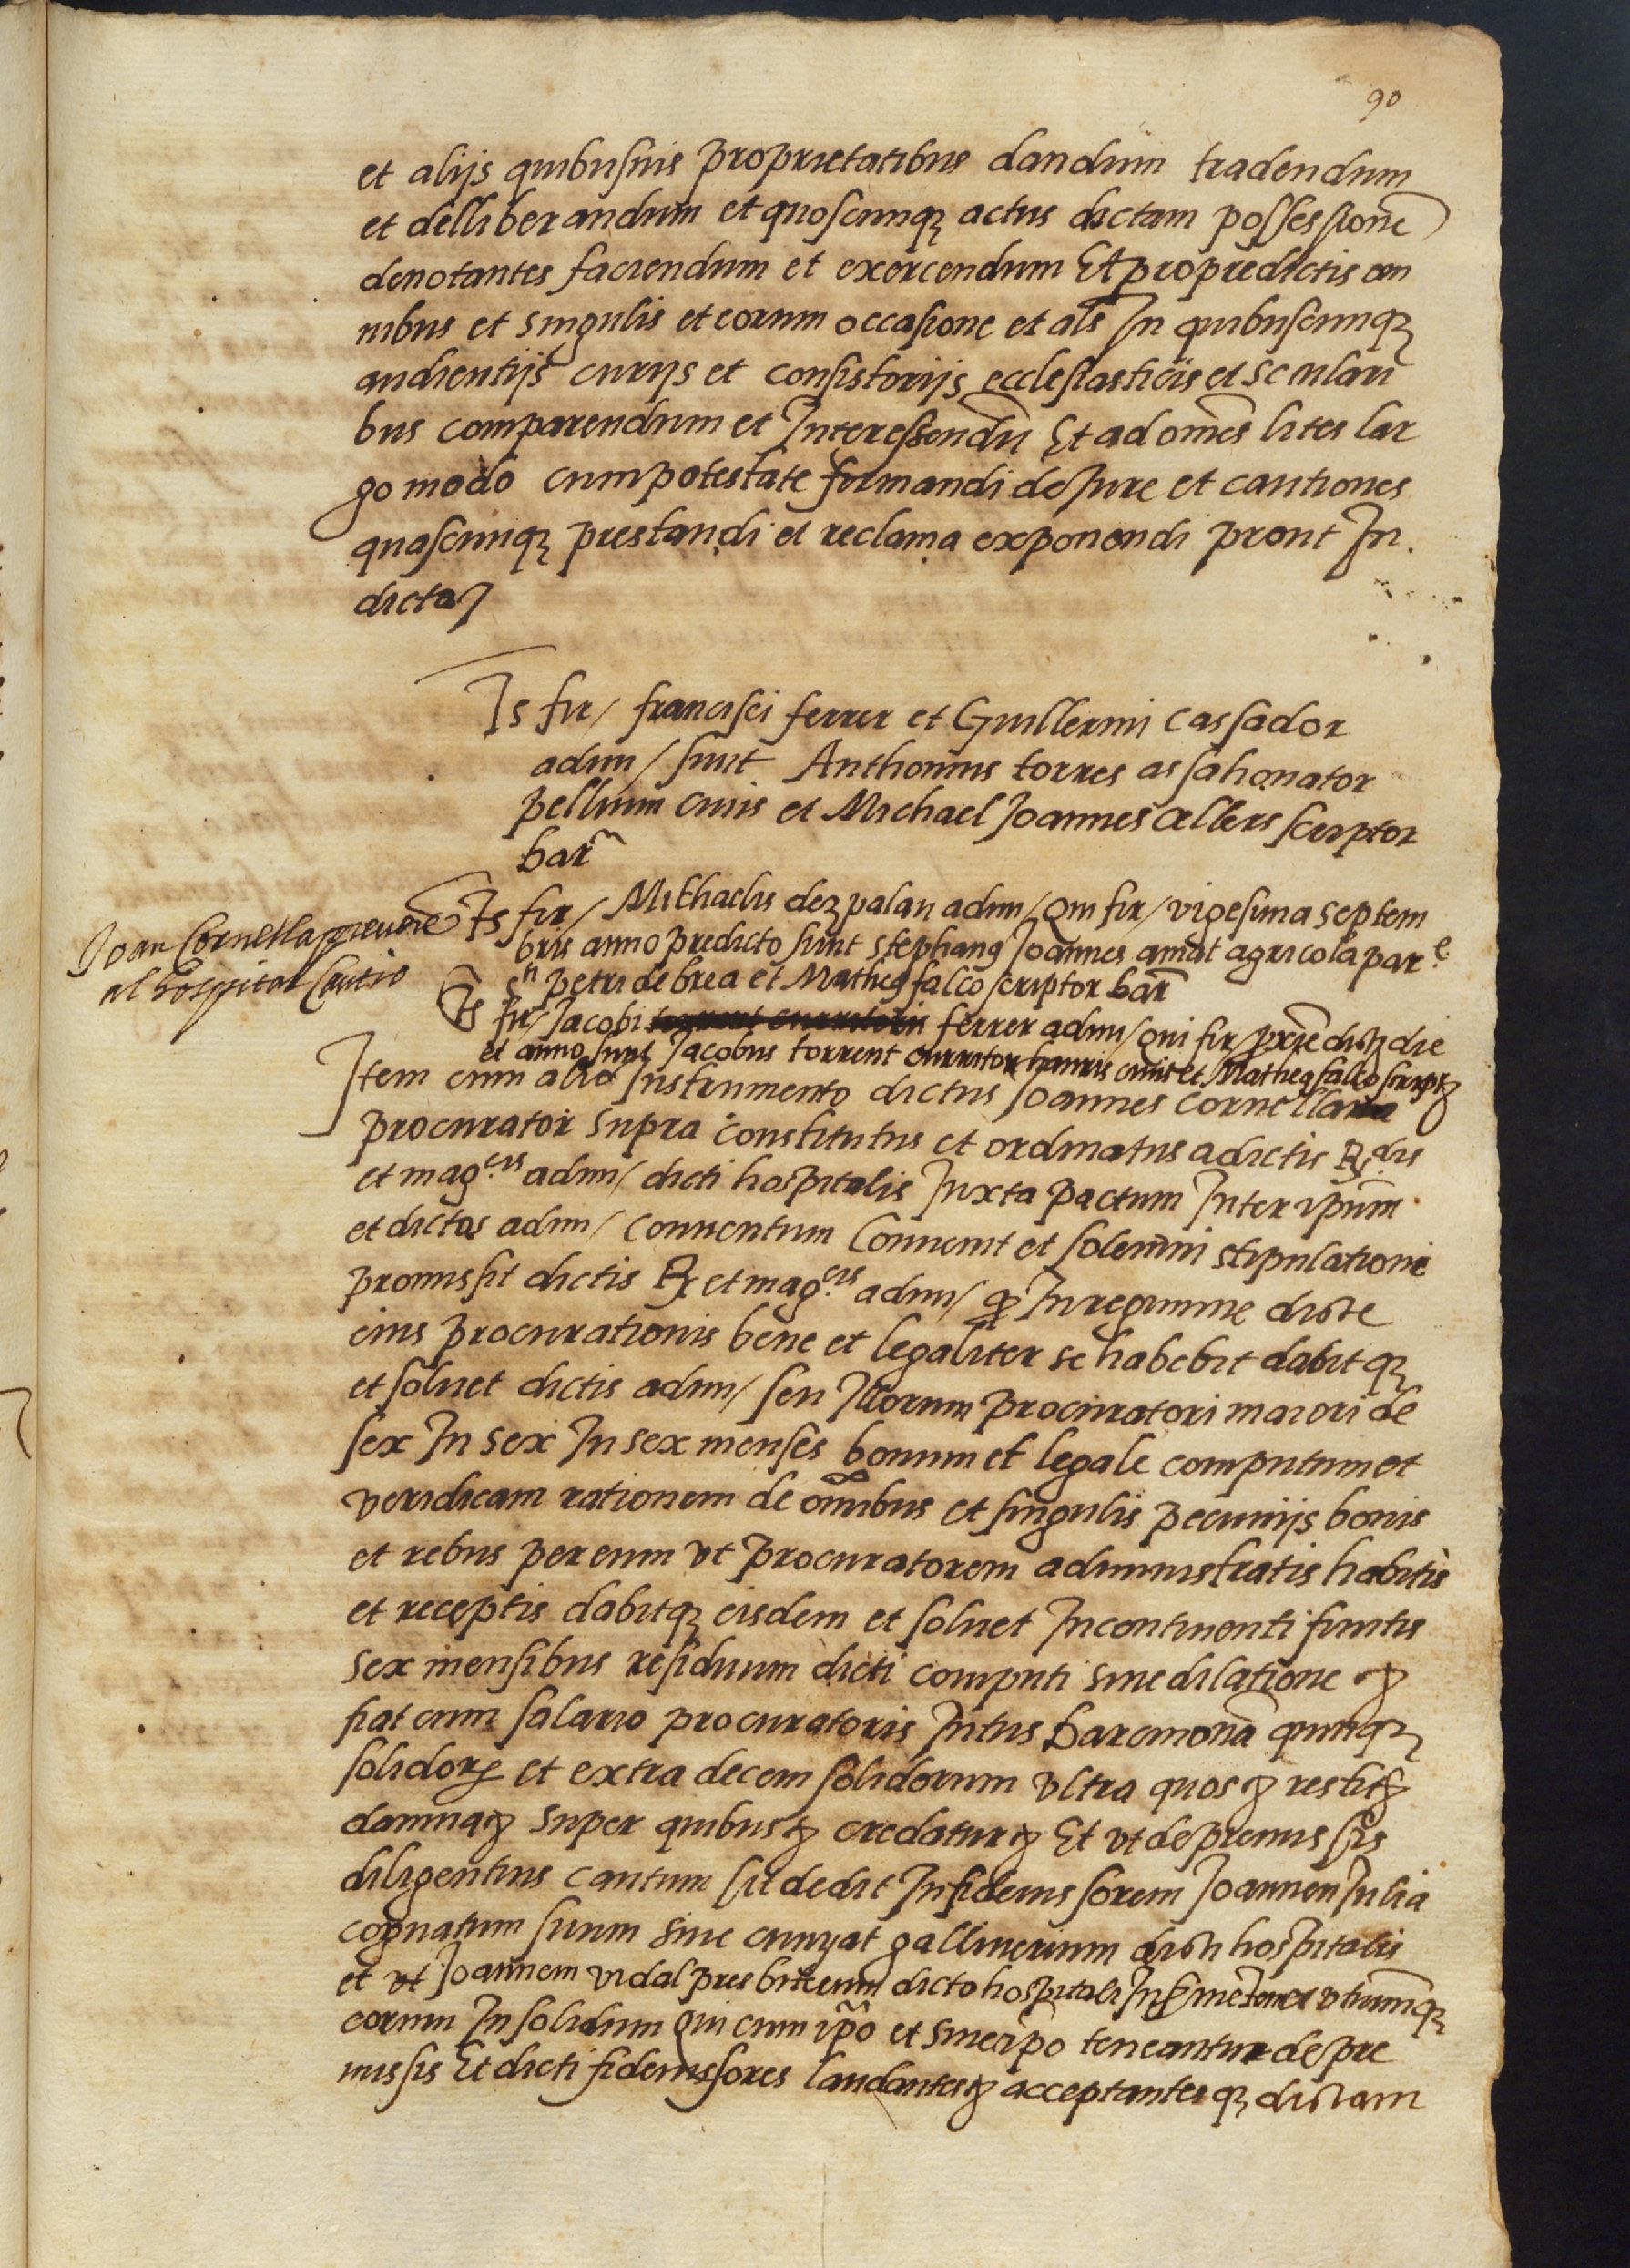 90
et alijs quibusuis proprietatibus dandum tradendum
et delliberandum et quoscunq₃ actus dictam possessionē
denotantes faciendum et exercendum Et pro predictis om
nibus et singulis et eorum occasione et als̄ In quibuscunq₃
audientijs curijs et consistorijs ecclesiasticis et secularі
bus comparendum et Interessendū Et ad om̄es lites lar
go modo cum potestate firmandi de Jure et cautiones
quascunq₃ prestandi et reclama exponendi prout In
dicta
Ts fir/ francisci ferrer et Guillermi cassador
adm/ sunt Anthonius torres assahonator
pellium ciuis et Michael Joannes cellers scriptor
bar̄
Joan Cornella preuere
al hospital Cautio
Ts fir/ Michaelis dez palau adm/ Qui fir/ vigesima septem
bris anno predicto sunt stephanꝯ Joannes amat agricola par.e
Sti petri de brea et Matheꝯ falco scriptor bar̄
Ts fir/ Jacobi ferrer adm/ qui fir/ die
et anno sunt Jacobus torrent curritor ciuis et Matheꝯ falco script
Item cum alio Instrumento dictus Joannes cornella
procurator supra constitutus et ordinatus a dictis R.dis
et mag.cis adm/ dicti hospitalis Juxta pactum Inter ipsum
et dictos adm/ conuentum Conuenit et solemni stipulatione
promissit dictis R et mag.cis adm/ ꝙ In regimine dicte
eius procurationis bene et legaliter se habebit dabitq₃
et soluet dictis adm/ seu Illorum procuratori maiori de
sex In sex In sex menses bonum et legale computum et
veridicam rationem de om̄ibus et singulis pecunijs bonis
et rebus per eum vt procuratorem administratis habitis
et receptis dabitq₃ eisdem et soluet Incontinenti finitis
sex mensibus residuum dicti computi sine dilatione ꝛ
fiat cum salario procuratoris Intus Barcinonā quinq₃
solidorꝝ et extra decem solidorum vltra quos ꝛ restitꝛ
damna ꝛ super quibus ꝛ credatur ꝛ Et vt de premissis
diligentius cautum sit dedit In fideiussorem Joannem Julia
cognatum suum siue cunyat gallinerium dicti hospitalis
et vt Joannem vidal presbiterum dicto hospitali et vtrumq₃
eorum In solidum Qui cum ip̄o et sine ip̄o teneantur de pre
missis Et dicti fideiussores laudantes ꝛ acceptantesq₃ dictam